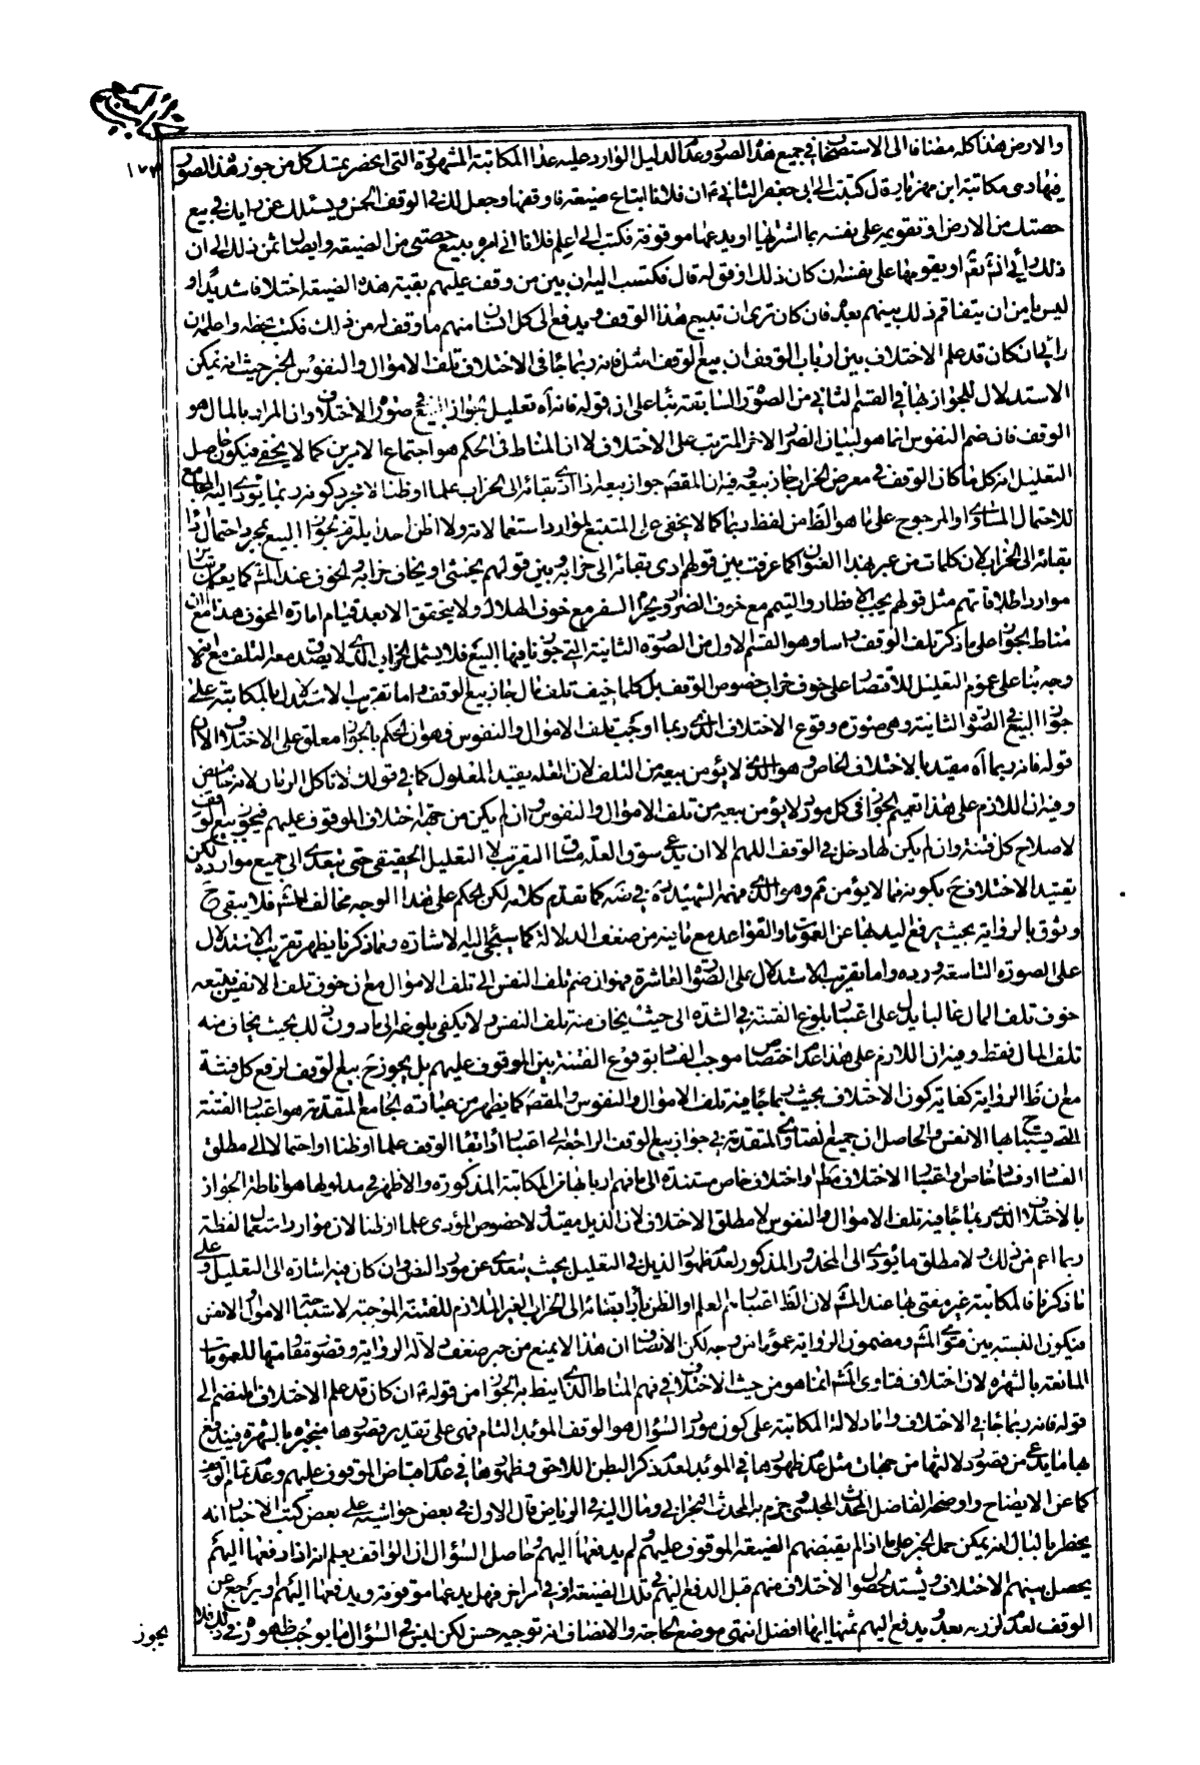 ١٧٣
والارض هذا كله مضافا الى الاستصحاب في جميع هذه الصور وعدم الدليل الوارد عليه عدا المكاتبة المشهورة التي انحصر تمسك كل من جوز هذه الصور
فيها وهي مكاتبة ابن مهزيار قال كتبت الى ابي جعفر الثاني ع ان فلانا ابتاع ضيعة فاوقفها وجعل لك في الوقف الخمس ويسئلك عن رايك في بيع
حصتك من الارض او تقويمها على نفسه بما اشتراها او يدعها موقوفة فكتب الى اعلم فلانا اني امره ببيع حصتي من الضيعة وايصال ثمن ذلك الى ان
ذلك رأيي انشأ الله تعم او يقومها على نفسه ان كان ذلك اوفق له قال فكتبت اليه ان بين من وقف عليهم بقية هذه الضيعة اختلافا شديدا و
ليس يامن ان يتفاقم ذلك بينهم بعده فان كان ترى ان تبيع هذا الوقف ويدفع الى كل انسان منهم ما وقف له من ذلك فكتب بخطه واعلمه ان
رايي ان كان قد علم الاختلاف بين ارباب الوقف ان بيع الوقف امثل فانه ربما جاء في الاختلاف تلف الاموال والنفوس الخبر حيث انه يمكن
الاستدلال للجواز بها في القسم الثاني من الصورة السابعة بناء على ان قوله فانه آه تعليل لجواز البيع في صورة الاختلاف وان المراد بالمال هو
الوقف فان ضم النفوس انما هو لبيان الضرر الاخر المترتب على الاختلاف لا ان المناط في الحكم هو اجتماع الامرين كما لا يخفى فيكون حاصل
التعليل انه كلما كان الوقف في معرض الخراب جاز بيعه وفيه ان المقصود جواز بيعه اذا ادى بقائه الى الخراب علما او ظنا لا مجرد كونه ربما يؤدي اليه المجامع
للاحتمال المساوي او المرجوح على ما هو الظ من لفظ ربما كما لا يخفى على المتتبع لموارد استعمالاته ولا اظن احدا يلتزم بجواز البيع بمجرد احتمال اداء
بقائه الى الخراب لان كلمات من عبر بهذا العنوان كما عرفت بين قولهم ادى بقائه الى خرابه وبين قولهم يخشى او يخاف خرابه والخوف عند المش كما يعلم من سائر
موارد اطلاقاتهم مثل قولهم يجب الافطار والتيمم مع خوف الضرر ويحرم السفر مع خوف الهلاك ولا يتحقق الا بعد قيام امارة الخوف هذا مع ان
مناط الجواز على ما ذكر تلف الوقف راسا وهو القسم الاول من الصورة الثانية التي جوزنا فيها البيع فلا يشمل الخراب الذي لا يصدق معه التلف مع انه لا
وجه بناء على عموم التعليل للاقتصار على خوف خراب خصوص الوقف بل كلما خيف تلف مال جاز بيع الوقف واما تقريب الاستدلال بالمكاتبة على
جواز البيع في الصورة الثامنة وهي صورة وقوع الاختلاف الذي ربما اوجب تلف الاموال والنفوس فهو ان الحكم بالجواز معلق على الاختلاف الا ان
قوله فانه ربما آه مقيد بالاختلاف الخاص وهو الذي لا يؤمن معه من التلف لان العلة يقيد المعلول كما في قولك لا تاكل الرمان لانه حامض
وفيه ان اللازم على هذا تعميم الجواز في كل مورد لا يؤمن معه من تلف الاموال والنفوس وان لم يكن من جهة اختلاف الموقوف عليهم فيجوز بيع الوقف
لاصلاح كل فتنة وان لم يكن لها دخل في الوقف اللهم الا ان يدعى سوق العلة مساق التقريب لا التعليل الحقيقي حتى يتعدى الى جميع موارده لكن
تقييد الاختلاف ح بكونه مما لا يؤمن ثم وهو الذي فهمه الشهيد ره في ضه كما تقدم كلامه لكن الحكم على هذا الوجه مخالف للمش فلا يبقى ح
وثوق بالرواية بحيث يرفع اليد بها عن العمومات والقواعد مع ما فيه من ضعف الدلالة كما سيجئ اليه الاشارة ومما ذكرنا يظهر تقريب الاستدلال
على الصورة التاسعة ورده واما تقريب الاستدلال على الصورة العاشرة فهو ان ضم تلف النفس الى تلف الاموال مع ان خوف تلف الانفس يتبعه
خوف تلف المال غالبا يدل على اعتبار بلوغ الفتنة في الشدة الى حيث يخاف منه تلف النفس ولا يكفي بلوغه الى ما دون ذلك بحيث يخاف منه
تلف المال فقط وفيه ان اللازم على هذا عدم اختصاص موجب الفساد بوقوع الفتنة بين الموقوف عليهم بل يجوز ح بيع الوقف لرفع كل فتنة
مع ان ظ الرواية كفاية كون الاختلاف بحيث ربما جاء فيه تلف الاموال والنفوس والمقصود كما يظهر من عبارة الجامع المتقدمة هو اعتبار الفتنة
التي يستباح بها الانفس والحاصل ان جميع الفتاوي المتقدمة في جواز بيع الوقف الراجعة الى اعتبار اداء بقاء الوقف علما او ظنا او احتمالا الى مطلق
الفساد او فساد خاص او اعتبار الاختلاف مطلقا او اختلاف خاص مستندة الى ما فهم اربابها من المكاتبة المذكورة والاظهر في مدلولها هو اناطة الجواز
بالاختلاف الذي ربما جاء فيه تلف الاموال والنفوس لا مطلق الاختلاف لان الذيل مقيد ولا خصوص المؤدي علما او ظنا لان موارد استعمال لفظة
ربما اعم من ذلك ولا مطلق ما يؤدي الى المحذور المذكور لعدم ظهور الذيل في التعليل بحيث يتعدى عن مورد النص وان كان فيه اشارة الى التعليل وعلى
ما ذكرنا فالمكاتبة غير مفتى بها عند المش لان الظ اعتبارهم العلم او الظن باداء بقائه الى الخراب الغير الملازم للفتنة الموجبة لاستباحة الاموال والانفس
فيكون النسبة بين فتوى المش ومضمون الرواية عموما من وجه لكن الانصاف ان هذا لا يمنع من جبر ضعف دلالة الرواية وقصور مقاومتها للعمومات
المانعة بالشهرة لان اختلاف فتاوى المش انما هو من حيث الاختلاف في فهم المناط الذي انيط به الجواز من قوله ع ان كان قد علم الاختلاف المنضم الى
قوله فانه ربما جاء في الاختلاف واما دلالة المكاتبة على كون مورد السؤال هو الوقف المؤبد التام فهي على تقدير قصورها منجبرة بالشهرة فيندفع
بها ما يدعى من قصور دلالتها من جهات مثل عدم ظهورها في المؤبد لعدم ذكر البطن اللاحق وظهورها في عدم اقباض الموقوف عليهم وعدم تمام الوقف
كما عن الايضاح واوضحه الفاضل المحدث المجلسي وجزم به المحدث البحراني ومال اليه في الرياض قال الاول في بعض حواشيه على بعض كتب الاخبار انه
يخطر بالبال انه يمكن حمل الخبر على ما اذا لم يقبضهم الضيعة الموقوفة عليهم ولم يدفعها اليهم وحاصل السؤال ان الواقف يعلم انه اذا دفعها اليهم
يحصل بينهم الاختلاف ويشتد لحصول الاختلاف منهم قبل الدفع اليهم في تلك الضيعة او في امر اخر فهل يدعها موقوفة ويدفعها اليهم او يرجع عن
الوقف لعدم لزومه بعد ويدفع اليهم ثمنها ايها افضل انتهى موضع الحاجة والانصاف انه توجيه حسن لكن ليس في السؤال ما يوجب ظهوره في ذلك فلا
يجوز